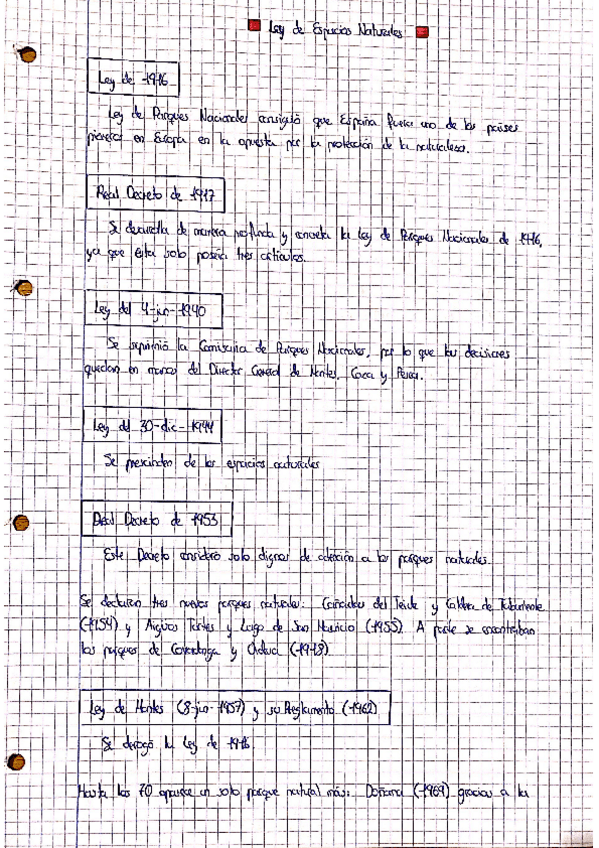 Ley de Espacios Naturales
Ley de 1916
Ley de Parques Nacionales consiguió que España fuera uno de los países
pioneros en Europa en la apuesta por la protección de la naturaleza.
Real Decreto de 1917
Se desarrolla de manera profunda y concreta la Ley de Parques Nacionales de 1916,
ya que ésta solo poseía tres artículos.
Ley del 4-jun-1940
Se suprimió la Comisaría de Parques Nacionales, por lo que las decisiones
quedan en manos del Director General de Montes, Caza y Pesca.
Ley del 30-dic-1944
Se prescinden de los espacios naturales
Real Decreto de 1953
Este Decreto consideró solo dignos de atención a los parques naturales.
Se declaran tres nuevos parques naturales: Cañadas del Teide y Caldera de Taburiente
(1954) y Aigües Tortes y Lago de San Mauricio (1955). A parte se encontraban
los parques de Covadonga y Ordesa (1918).
Ley de Montes (8-jun-1957) y su Reglamento (1962)
Se derogó la Ley de 1916
Hasta los 70 aparece un solo parque natural más: Doñana (1969) gracias a la